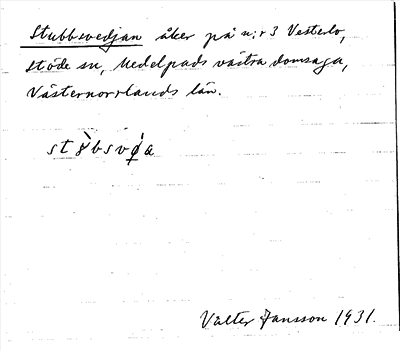 Stubbsvedjan åker på n:r 3 Vesterlo,
Stöde sn, Medelpads västra domsaga,
Västernorrlands län.
Valter Jansson 1931.